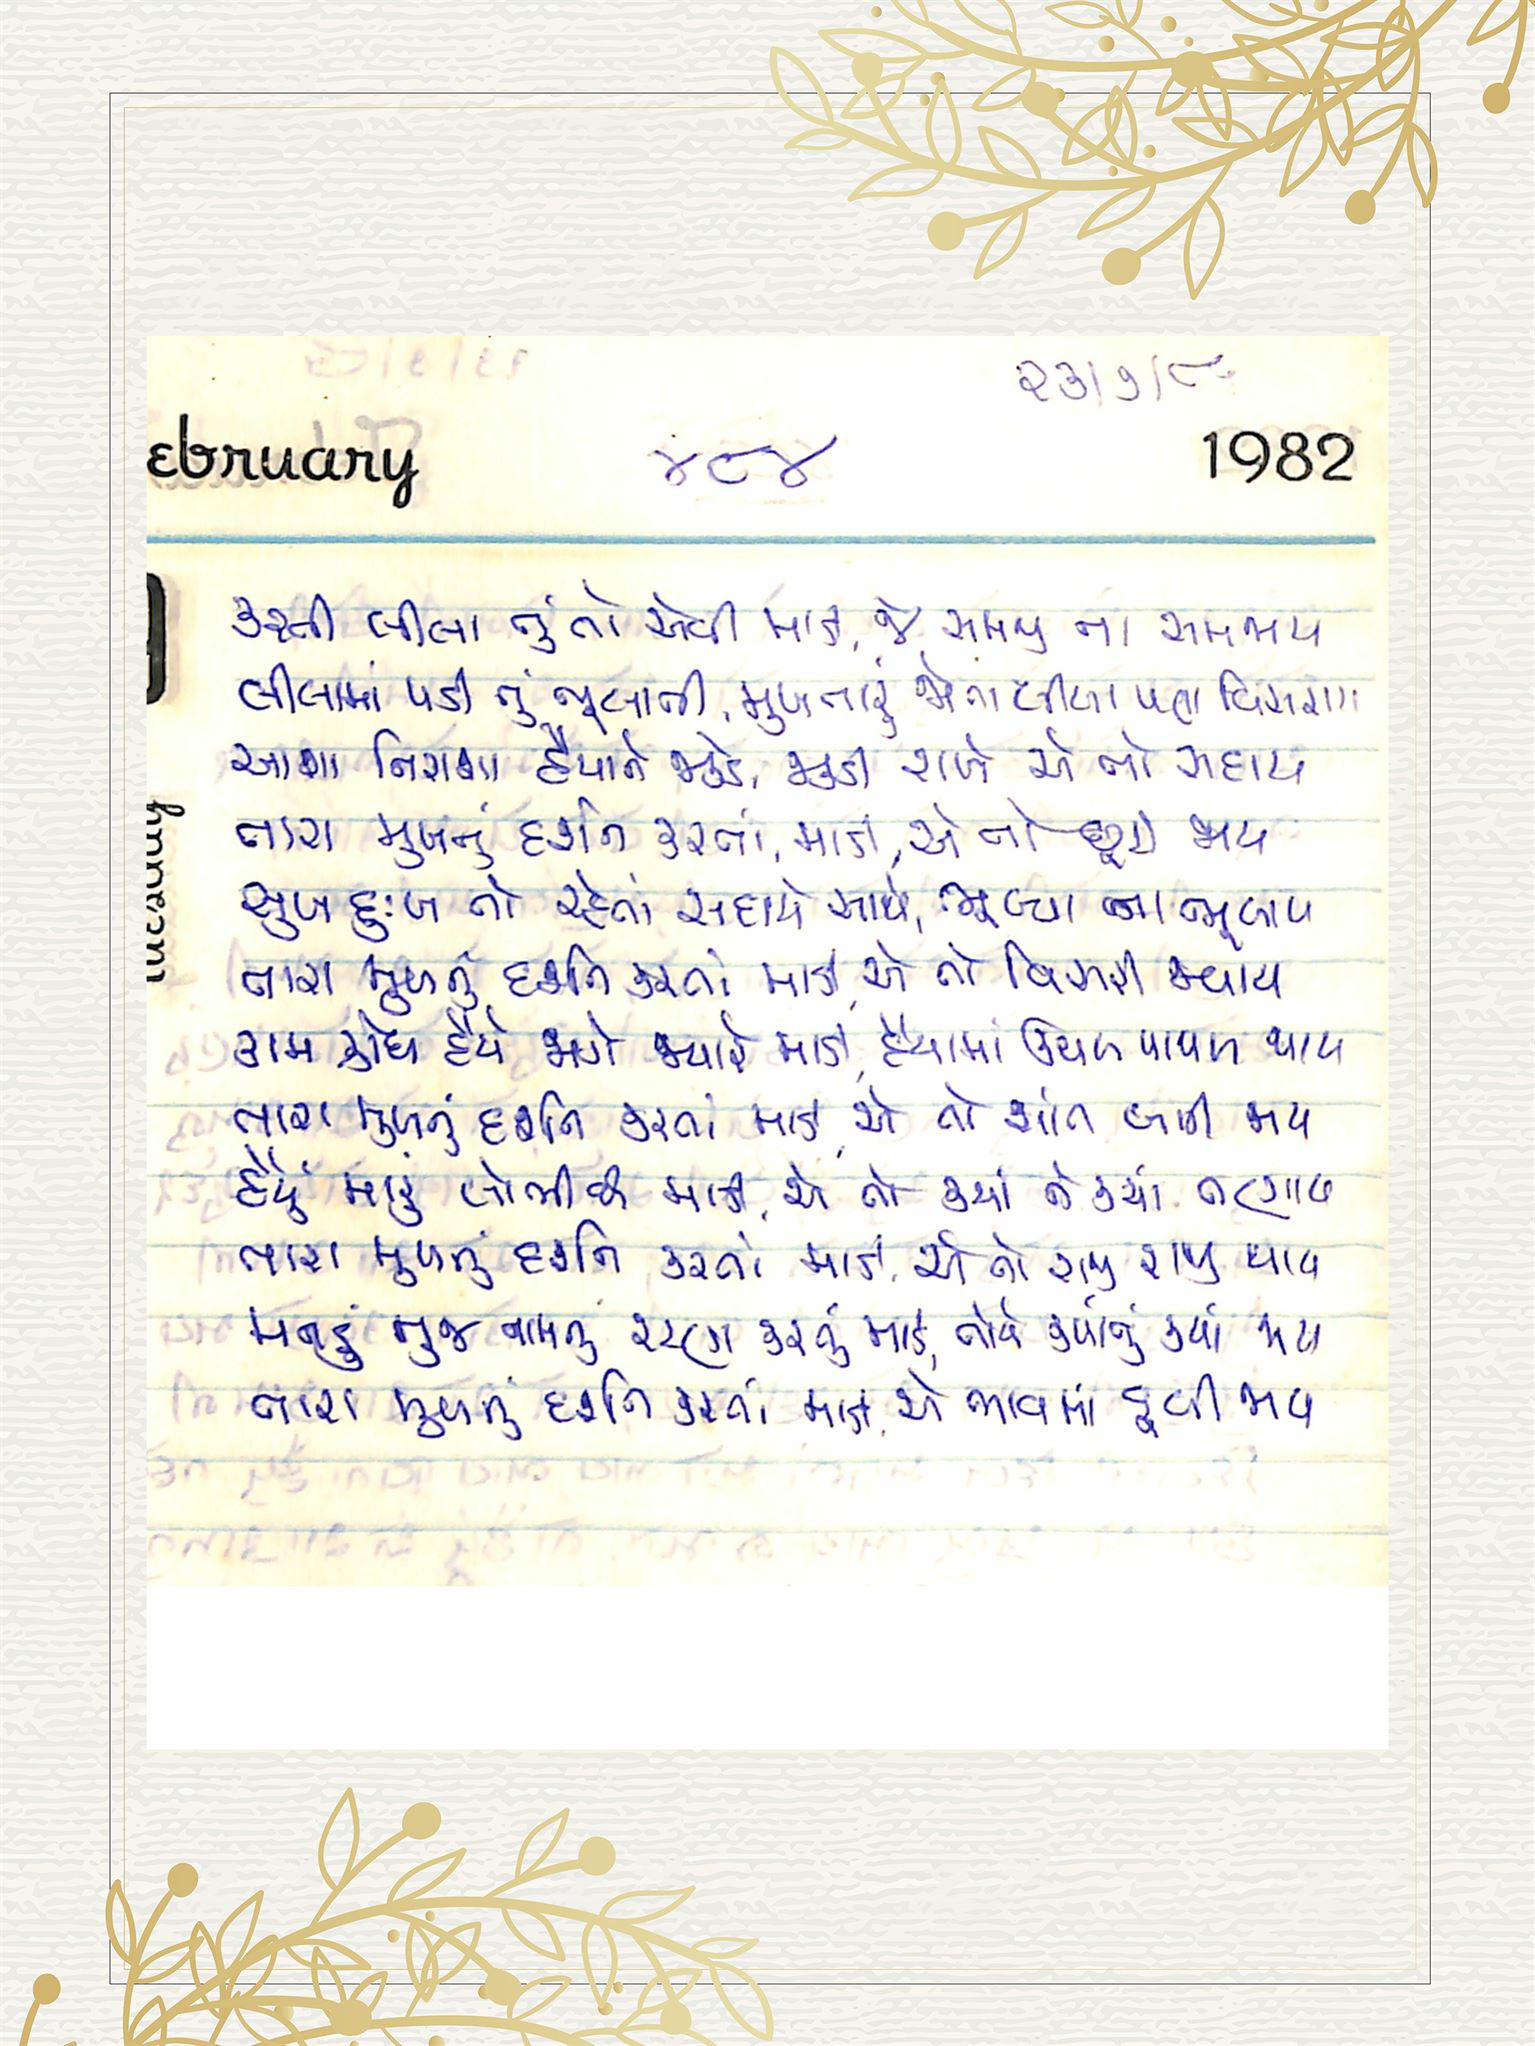 ૨૩/૧/૮૬
ebruary ૪૮૪ 1982
hursday
કરતી લીલા તું તો એવી માડી, જે સમજી ના સમજાય
લીલામાં પડી તું ભૂલાતી, મુખ તારું જોતા લીલા પણ વિસરાય
આશા નિરાશા હૈયાને જકડે, જકડી રાખે એ તો સદાય
તારા મુખનું દર્શન કરતાં, માડી, એ તો છૂટી જાય
સુખ દુઃખ તો રહેતાં સદાયે સાથે, ભૂલ્યા ના ભૂલાય
તારા મુખનું દર્શન કરતાં માડી, એ તો વિસરી જવાય
કામ ક્રોધ હૈયે જાગે જ્યારે માડી, હૈયામાં ઉથલ પાથલ થાય
તારા મુખનું દર્શન કરતાં માડી, એ તો શાંત બની જાય
હૈયું મારું લોભી છે માડી, એ તો ક્યાં ને ક્યાં તણાય
તારા મુખનું દર્શન કરતાં માડી, એ તો રાજી રાજી થાય
મનડું તુજ નામનું રટણ કરતું માડી, તોયે ક્યાંનું ક્યાં જાય
તારા મુખનું દર્શન કરતાં માડી, એ ભાવમાં ડૂબી જાય